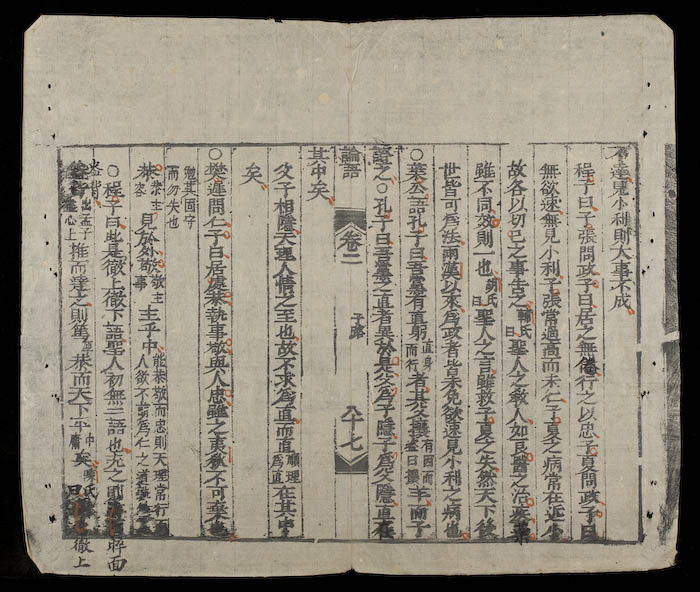 達見小利則大事不成
程子曰子張問政子曰居之無倦行之以忠子夏問政子曰
無欲速無見小利子張常過高而未仁子夏之病常在近小
故各以切己之事告之輔氏曰聖人之教人如良醫之治疾藥
雖不同效則一也胡氏曰聖人之言雖救子夏之失然天下後
世皆可為法兩漢以來為政者皆未免欲速見小利之病也
○葉公語孔子曰吾黨有直躬直身而行者其父攘有因而盜曰攘羊而子
證之○孔子曰吾黨之直者異於是父為子隱子為父隱直在
論語 卷二 子路 八十七
其中矣
父子相隱天理人情之至也故不求為直而直順理為直在其中
矣
○樊遲問仁子曰居處恭執事敬與人忠雖之夷狄不可棄也
勉其固守而勿失也
恭恭主容見於外敬敬主事主乎中能恭敬而忠則天理常行而人欲不萌為仁之道
○程子曰此是徹上徹下語聖人初無二語也充之則睟面
盎背出孟子盡心上推而達之則篤恭而天下平中庸矣陳氏曰徹上